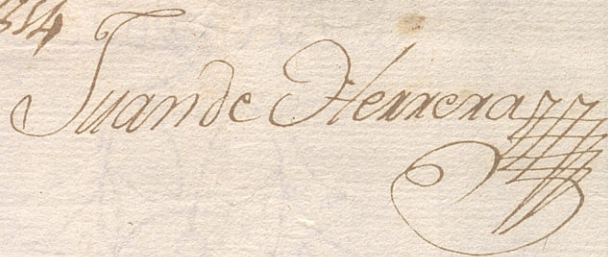 Juan de Herrera